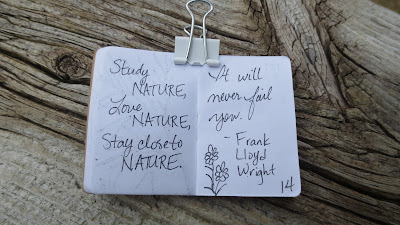 Study
NATURE,
Love
NATURE,
Stay close to
NATURE.
It will
never fail
you.
- Frank
Lloyd
Wright
14